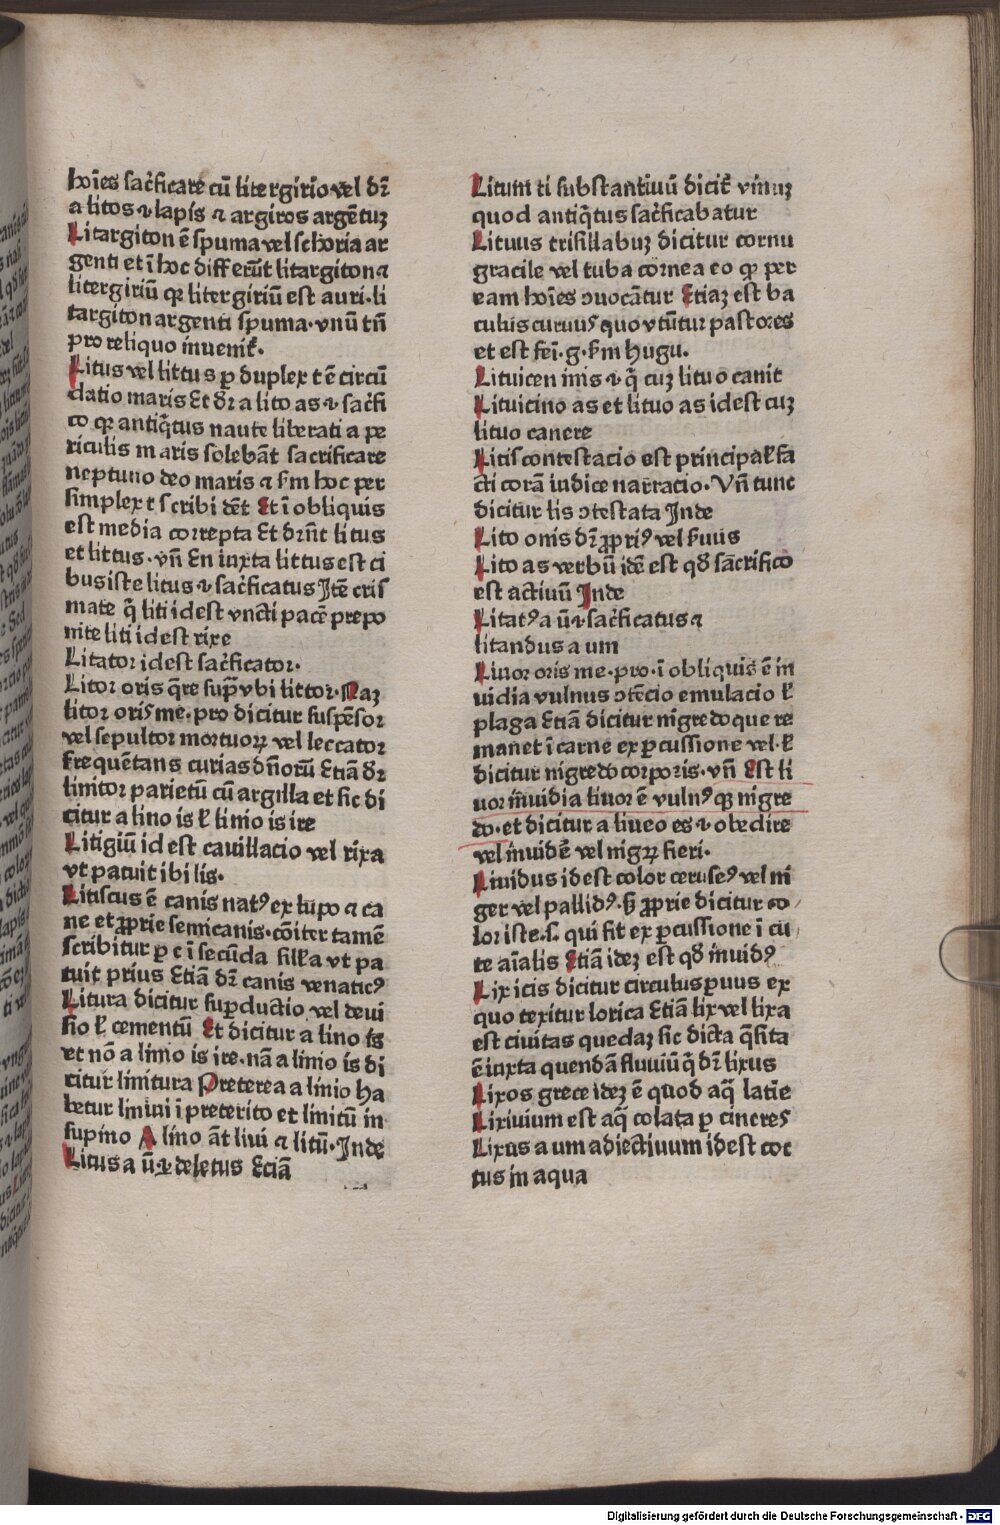 hoīes sac̄ficare cū litergirio vel dr̄
a litos ⁊ lapis ⁊ argiros argētuꝫ
Litargiton ē spuma vel schoria ar
genti et ī hoc differūt litargiton ⁊
litergiriū qꝛ litergiriū est auri· li
targiton argenti spuma· vnū tn̄
pro reliquo inueniť·
Litus vel littus ꝑ duplex t ē circū
datio maris Et dr̄ a lito as ⁊ sac̄fi
co qꝛ antiq̄tus naute liberati a pe
riculis maris solebāt sacrificare
neptuno deo maris ⁊ ẜm hoc per
simplex t scribi dēt Et ī obliquis
est media correpta Et dr̄nt litus
et littus· vn̄ En iuxta littus est ci
bus iste litus ⁊ sac̄ficatus Jtē cris
mate q̄ liti id est vncti pacē prepo
nite liti id est rixe
Litator id est sac̄ficator·
Litor oris q̄re supͣ vbi littor· Naꝫ
litor oris me· pro dicitur suspēsor
vel sepultor mortuoꝝ vel leccator
frequētans curias dn̄orū Etiā dr̄
linitor parietū cū argilla et sic di
citur a lino is ł linio is ire
Litigiū id est cauillacio vel rixa
vt patuit ibi lis·
Litiscus ē canis natꝰ ex lupo ⁊ ca
ne et ꝓprie semicanis· cōiter tamē
scribitur ꝑ c ī secūda silľa vt pa
tuit prius Etiā dr̄ canis venaticꝰ
Litura dicitur suꝑductio vel deui
sio ł cementū Et dicitur a lino is
et nō a linio is ire· nā a linio is di
citur linitura Preterea a linio ha
betur liniui ī preterito et linitū in
supino A lino āt liui ⁊ litū· Jnde
Litus a ū ⁊ deletus Eciā
Litum ti substantiuū diciť vinuꝫ
quod antiq̄tus sac̄ficabatur
Lituus trisillabuꝫ dicitur cornu
gracile vel tuba cornea eo qꝙ per
eam hoīes ꝯuocātur Etiaꝫ est ba
culus curuus quo vtūtur pastores
et est feī· g· ẜm hugu·
Lituicen inis ⁊ q̄ cuꝫ lituo canit
Lituicino as et lituo as id est cuꝫ
lituo canere
Litis contestacio est principaľ fa
cti corā iudice narracio· Vn̄ tunc
dicitur lis ꝯtestata Jnde
Lito onis dr̄ ꝓpriꝰ vel seruus
Lito as verbū idē est qđ sac̄rifico
est actiuū Jnde
Litatꝰ a ū ⁊ sac̄ficatus ⁊
litandus a um
Liuor oris me· pro· ī obliquis ē in
uidia vulnus ꝯtēcio emulacio ł
plaga Etiā dicitur nigredo que re
manet ī carne ex ꝑcussione vel· ł
dicitur nigredo corporis· vn̄ Est li
uor inuidia liuor ē vulnꝰ qꝙ nigre
do· et dicitur a liueo es ⁊ obedire
vel inuidē vel nigꝝ fieri·
Liuidus id est color ceruseꝰ vel ni
ger vel pallidꝰ· ꞩ ꝓprie dicitur co
lor iste· s· qui fit ex ꝑcussione ī cu
te aīalis Etiā ideꝫ est qđ inuidꝰ
Lix icis dicitur circulus ꝑuus ex
quo texitur lorica Etiā lix vel lixa
est ciuitas quedaꝫ sic dicta q̄ sita
ē iuxta quendā fluuiū q̄ dr̄ lixus
Lixos grece ideꝫ ē quod aq̄ latīe
Lixiuium est aq̄ colata ꝑ cineres
Lixus a um adiectiuum id est coc
tus in aqua
Digitalisierung gefördert durch die Deutsche Forschungsgemeinschaft - DFG